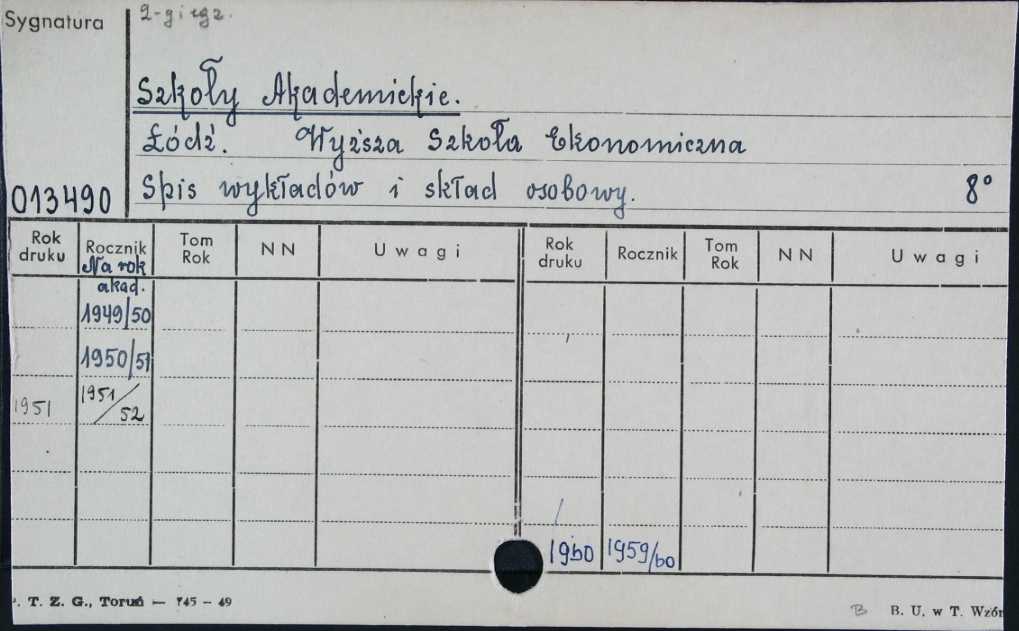 Sygnatura
2-gi egz.
Szkoły Akademickie.
Łódź. Wyższa Szkoła Ekonomiczna
013490 Spis wykładów i skład osobowy. 8°
Rok druku Rocznik Tom Rok NN Uwagi Rok druku Rocznik Tom Rok NN Uwagi
Na rok akad.
1949/50
1950/51
1951 1951/52
1960 1959/60
. T. Z. G., Toruń — 745 - 49 B B. U. w T. Wzór